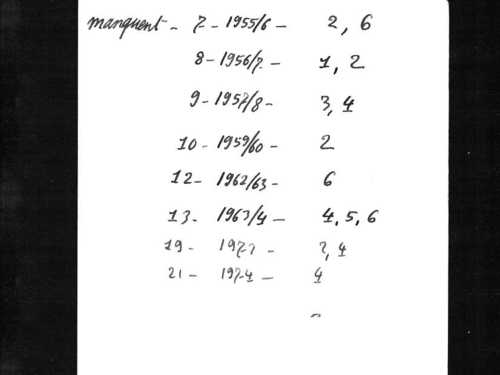 manquent - 7 - 1955/6 - 2, 6
8 - 1956/7 - 1, 2
9 - 1957/8 - 3, 4
10 - 1959/60 - 2
12 - 1962/63 - 6
13 - 1963/4 - 4, 5, 6
19 - - 4
21 - 1974 - 4